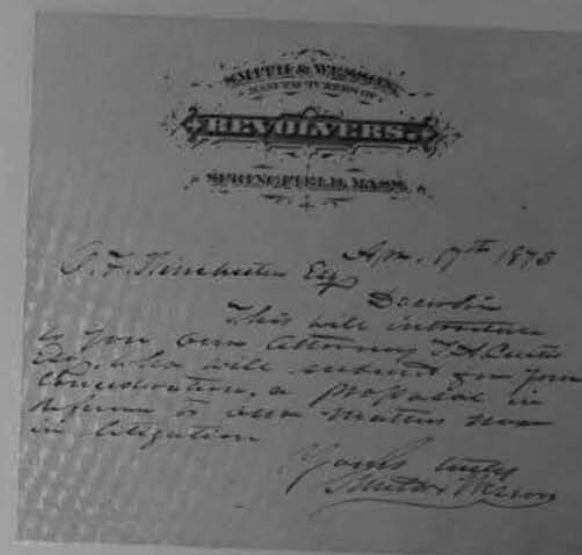 SMITH & WESSON,
MANUFACTURERS OF
REVOLVERS.
SPRINGFIELD, MASS.
Apr. 17th 1875
O. F. Winchester Esq
Dear Sir
This will introduce
to you our Attorney
Esq. who will submit for your
Consideration, a proposal in
reference to our matters now
in litigation
Yours truly
Smith & Wesson